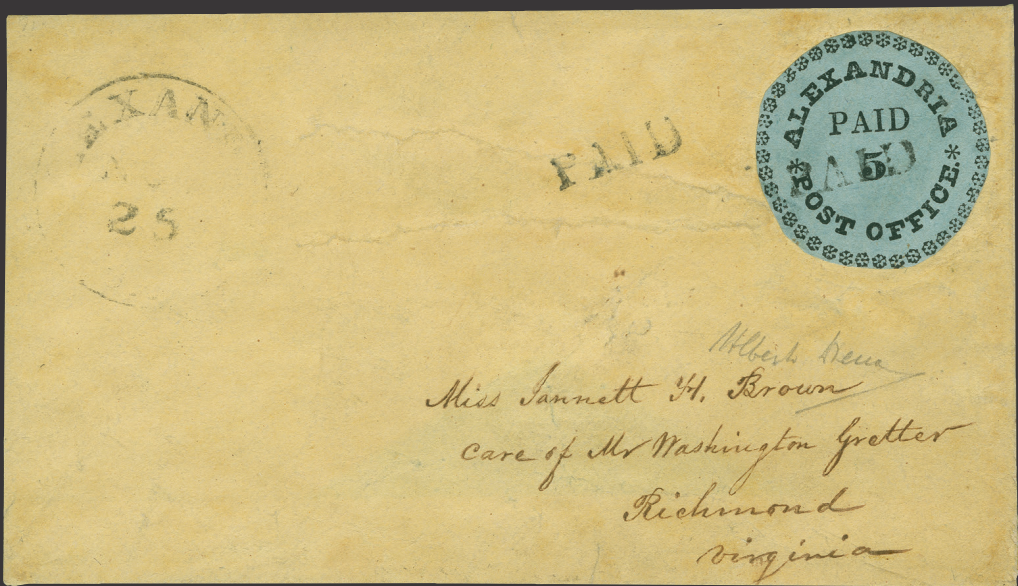 EXAN
25
PAID
ALEXANDRIA
PAID
5.
PAID
* POST OFFICE. *
Miss Jannett H. Brown
care of Mr Washington Gretter
Richmond
Virginia